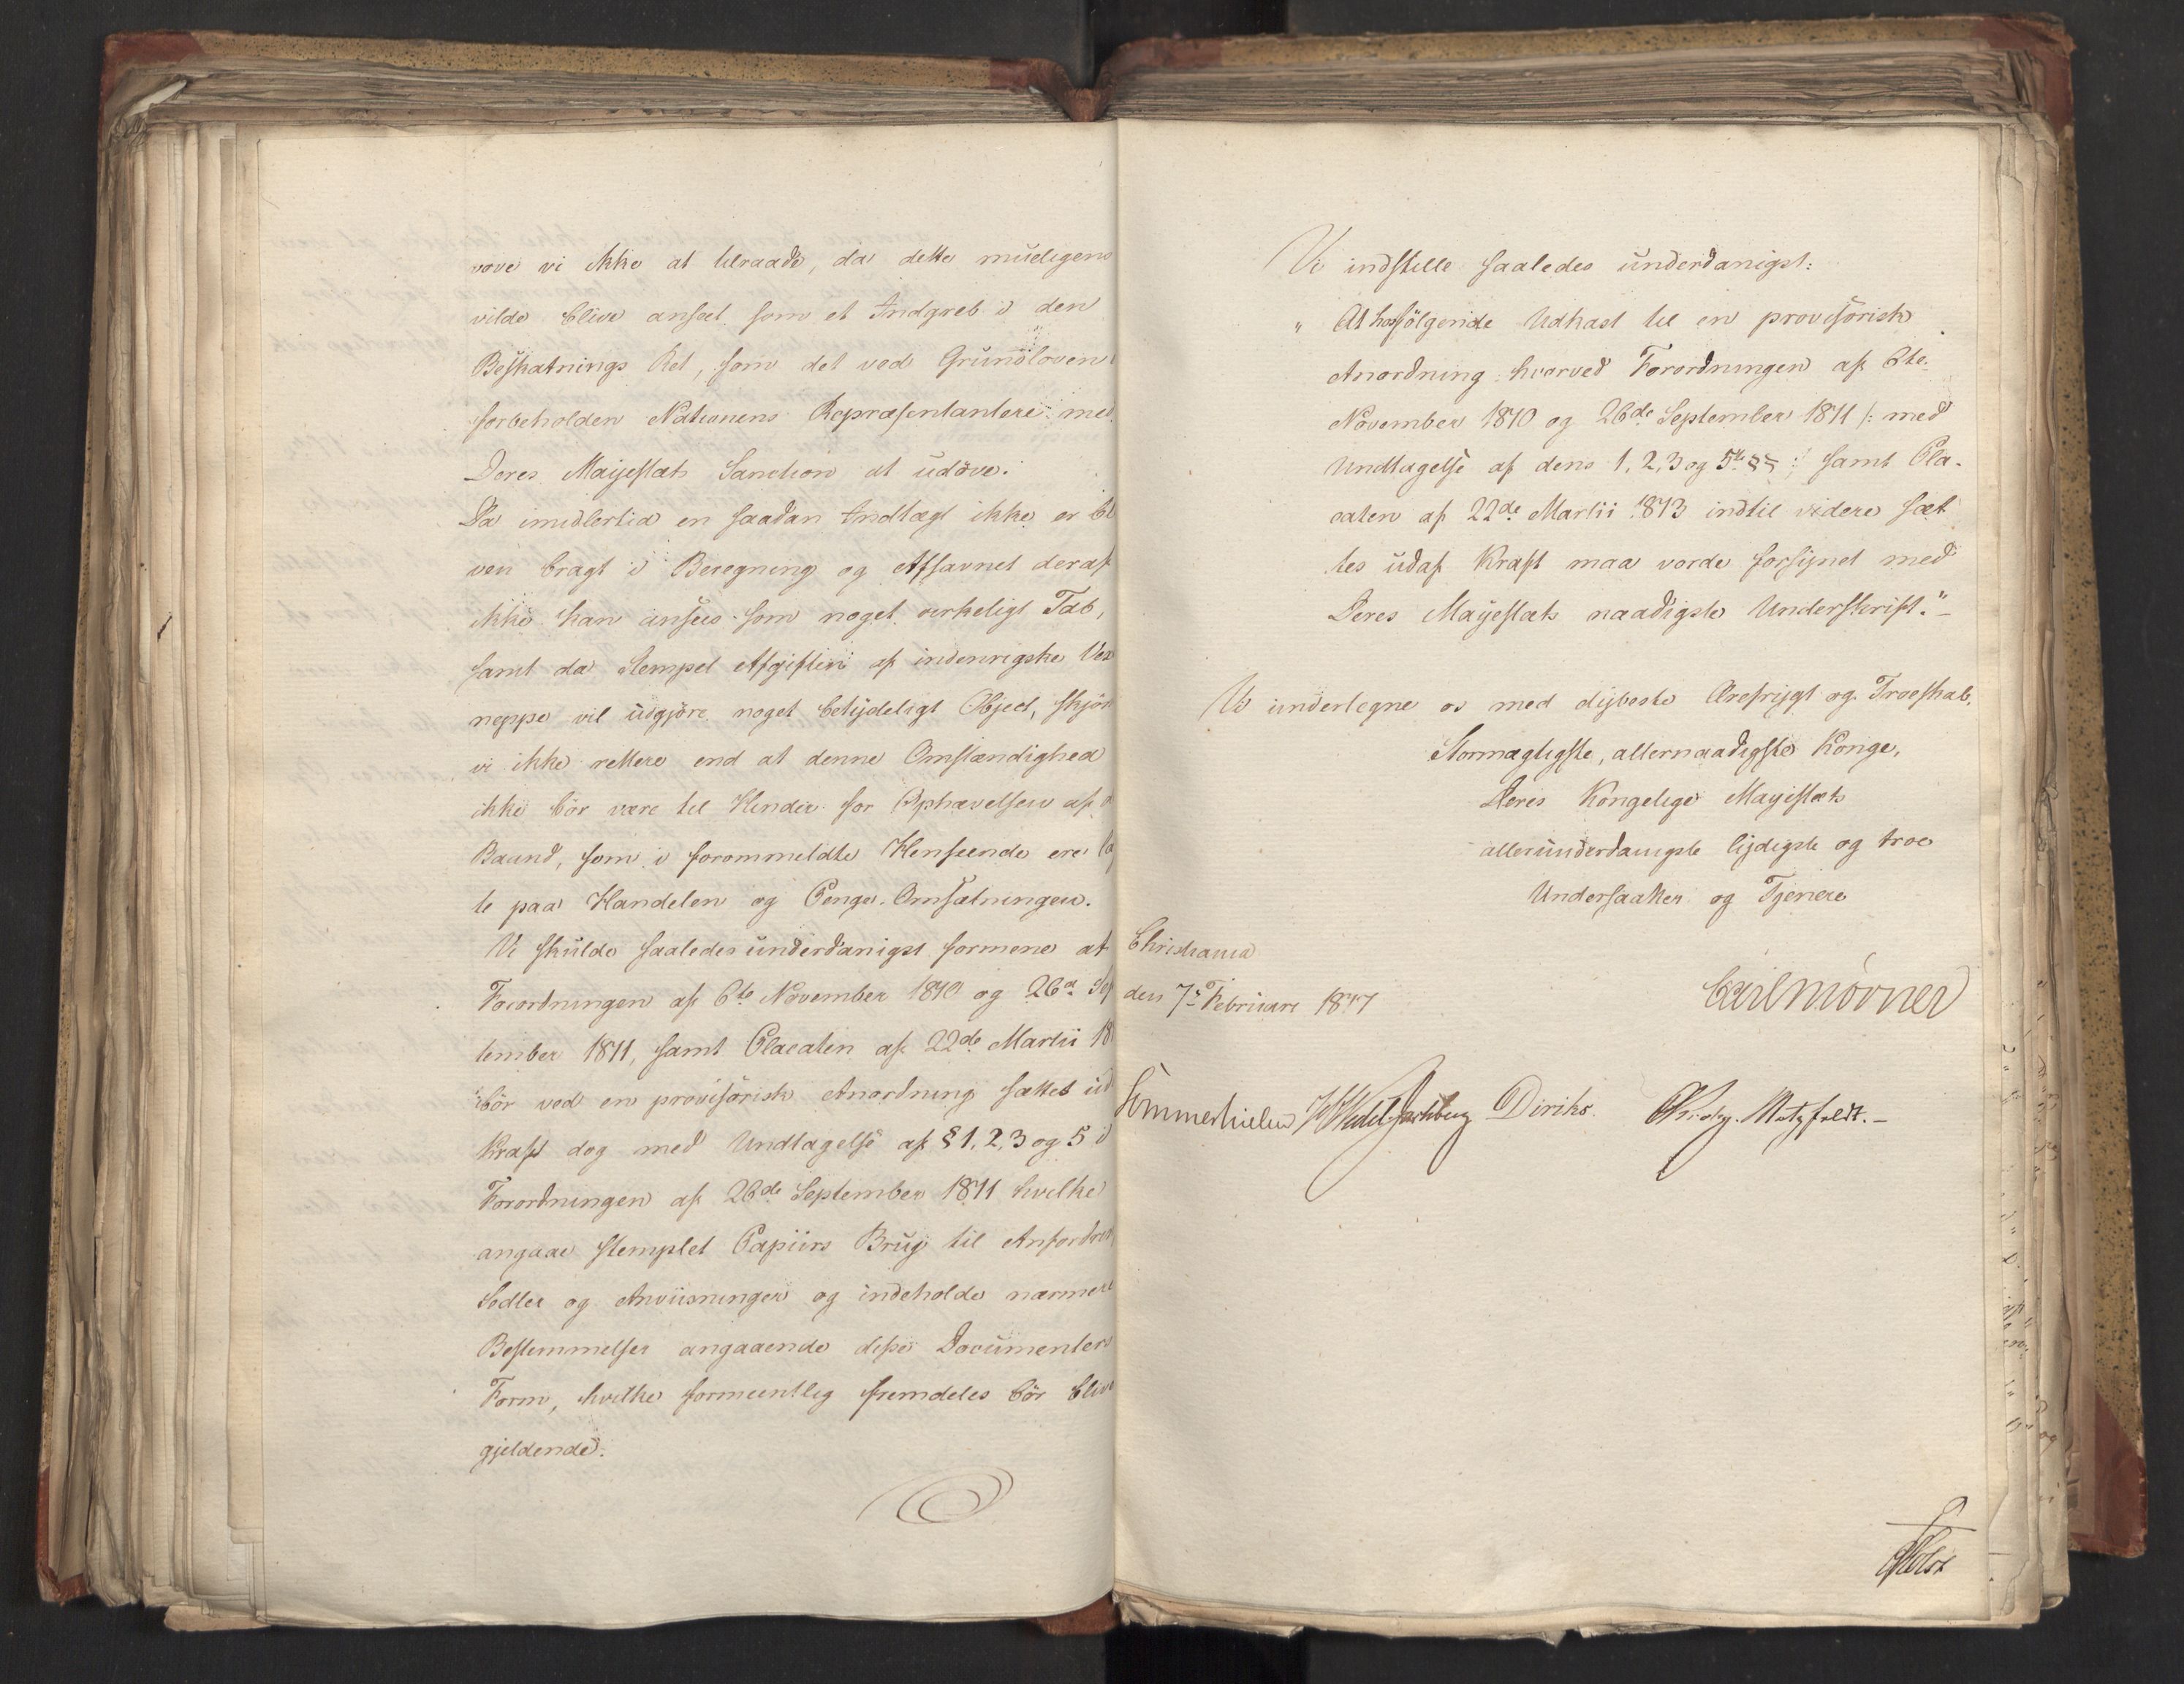 vove vi ikke at tilraade, da dette mueligens
vilde blive anseet som et Indgreb i den
Beskatnings Ret, som det ved Grundloven
forbeholden Nationens Repræsentantere med
Deres Majestæts Sanction at udöve.
Da imidlertid en saadan Indtægt ikke er ble
ven bragt i Beregning og Afsavnet deraf
ikke kan ansees som noget virkeligt Tab,
samt da Stempel Afgiften af indenrigske Vex
neppe vil udgjöre noget betydeligt Object, skjön
vi ikke rettere end at denne Omstændighed
ikke bör være til Hinder for Ophævelsen af
Baand, som i forommeldte Henseende ere lag
te paa Handelen og Penge-Omsætningen.
Vi skulde saaledes underdanigst formene at
Forordningen af 6te November 1810 og 26d Sep
tember 1811, samt Placaten af 22de Martii 18
bör ved en provisorisk Anordning sættes ud
Kraft dog med Undtagelse af § 1, 2, 3 og 5 i
Forordningen af 26de September 1811 hvilke
angaae stemplet Papiirs Brug til Anfordrings
Sedler og Anviisninger og indeholde nærmere
Bestemmelser angaaende disse Documenters
Form, hvilke formeentlig fremdeles bör blive
gjeldende.
Vi indstille saaledes underdanigst:
" At hosfölgende Udkast til en provisorisk
Anordning hvorved Forordningen af 6te
November 1810 og 26de September 1811 /: med
Undtagelse af dens 1, 2, 3 og 5te §§ :/ samt Pla-
caten af 22de Martii 1813 indtil videre sæt
tes udaf Kraft maa vorde forsynet med
Deres Majestæts naadigste Underskrift."-
Vi undertegne os med dybeste Ærefrygt og Troeskab,
Stormægtigste, allernaadigste Konge,
Deres Kongelige Majestæts
allerunderdanigste lydigste og troe
Undersaatter og Tjenere
Christiania
den 7de Februari 1817
Carl Mörner
Sommerhielm HWedelJarlsberg Diriks. Motzfeldt.-
Holst